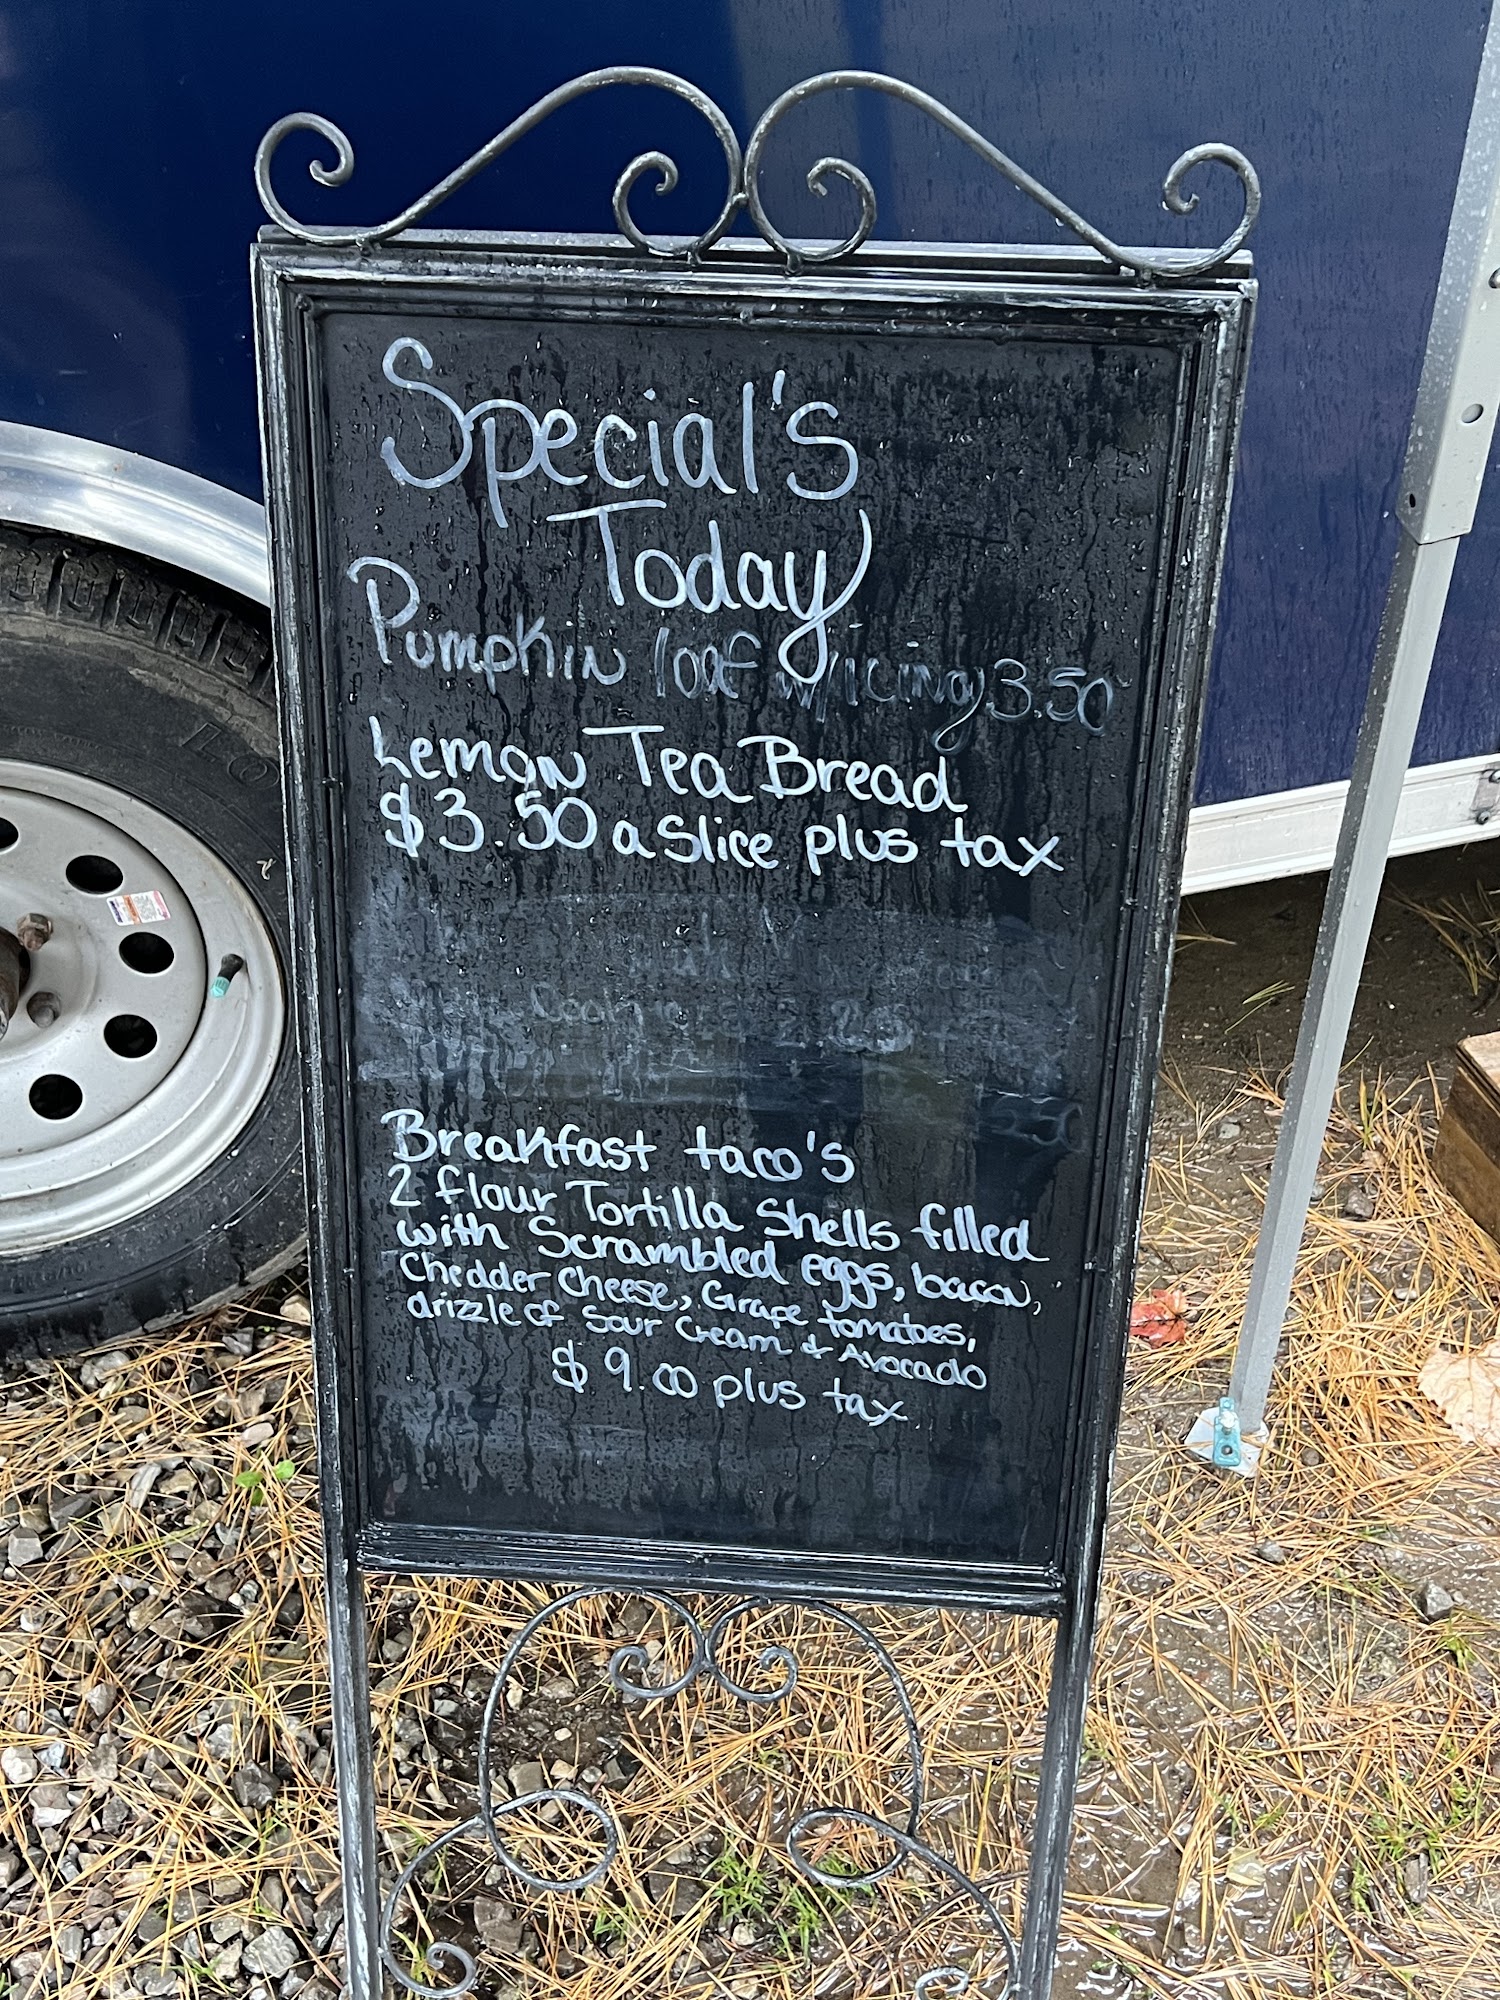 Special's
Today
Pumpkin loaf w/icing 3.50
Lemon Tea Bread
$3.50 a Slice plus tax
Breakfast taco's
2 flour Tortilla Shells filled
with Scrambled eggs, bacon,
Chedder Cheese, Grape tomatoes,
drizzle of Sour Cream & Avocado
$9.00 plus tax